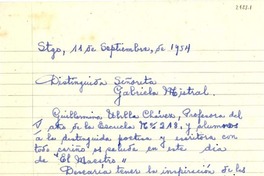 Stgo, 11 de Septiembre, de 1954
Distinguida Señorita
Gabriela Mistral.
Guillermina Ubilla Chávez, Profesora del
año de la Escuela Nº 212, y alumnos
a la distinguida poetisa y escritora con
todo cariño os saluda en este día
de "El Maestro"
Desearía tener la inspiración de los